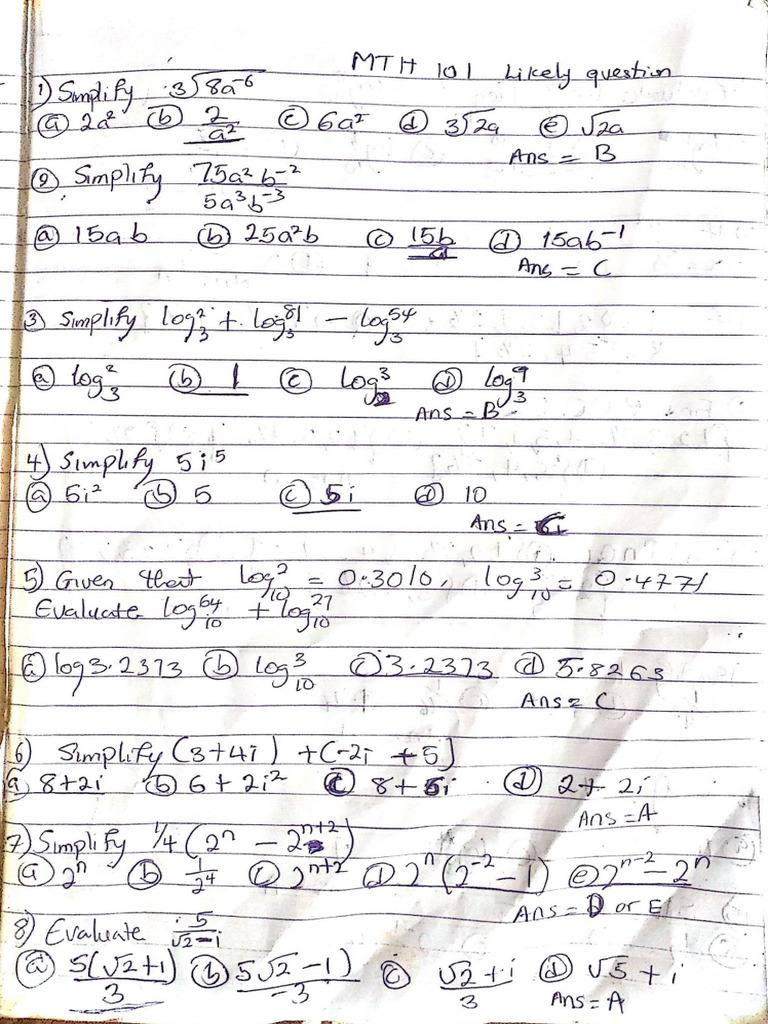 MTH 101 Likely question
1) Simplify 3√8a⁻⁶
ⓐ 2a² ⓑ 2/a² ⓒ 6a² ⓓ 3√2a ⓔ √2a
Ans = B
② Simplify 75a²b⁻²/5a³b⁻³
ⓐ 15ab ⓑ 25a²b ⓒ 15b/a ⓓ 15ab⁻¹
Ans = C
③ Simplify log₃² + log₃⁸¹ − log₃⁵⁴
ⓐ log₃² ⓑ 1 ⓒ log³ ⓓ log₃⁹
Ans = B
4) Simplify 5i⁵
ⓐ 5i² ⓑ 5 ⓒ 5i ⓓ 10
Ans = C
5) Given that log₁₀² = 0.3010, log₁₀³ = 0.4771
Evaluate log₁₀⁶⁴ + log₁₀²⁷
ⓐ log3.2373 ⓑ log₁₀³ ⓒ 3.2373 ⓓ 5.8263
Ans = C
6) Simplify (3+4i) + (-2i + 5)
ⓐ 8+2i ⓑ 6+2i² ⓒ 8+5i ⓓ 2+2i
Ans = A
7) Simplify ¼(2ⁿ − 2ⁿ⁺²)
ⓐ 2ⁿ ⓑ 1/2⁴ ⓒ 2ⁿ⁺² ⓓ 2ⁿ(2⁻² − 1) ⓔ 2ⁿ⁻² − 2ⁿ
Ans = D or E
8) Evaluate 5/√2−i
ⓐ 5(√2+1)/3 ⓑ 5√2−1)/−3 ⓒ √2+i/3 ⓓ √5+i
Ans = A